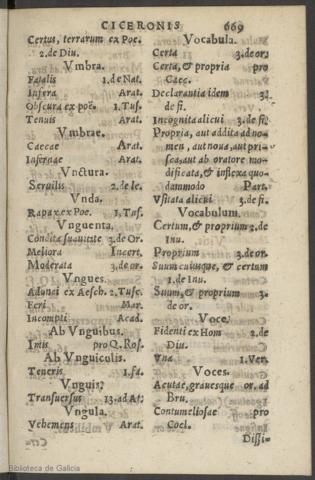 CICERONIS 669
Certus, terrarum ex Poe.
2. de Diu.
Vmbra.
Fatalis 1. de Nat.
Infera Arat.
Obscura ex poë. 1. Tus.
Tenuis Arat.
Vmbrae.
Caecae Arat.
Infernae Arat.
Vnctura.
Seruilis 2. de le.
Vnda.
Rapax ex Poe. 1. Tus.
Vnguenta.
Condita suauitate 3. de Or.
Meliora Incert.
Moderata 3. de or.
Vngues.
Adunci ex Aesch. 2. Tusc.
Feri Mar.
Incompti Acad.
Ab Vnguibus.
Imis pro Q. Ros.
Ab Vnguiculis.
Teneris 1. fa.
Vnguis.
Transuersus 13. ad At.
Vngula.
Vehemens Arat.
Vocabula.
Certa 3. de or.
Certa, & propria pro
Caec.
Declarantia idem 3.
de fi.
Incognita alicui 3. de fi.
Propria, aut addita ad no-
men, aut noua, aut pri-
sca, aut ab oratore mo-
dificata, & inflexa quo-
dammodo Part.
Vsitata alicui 3. de fi.
Vocabulum.
Certum, & proprium 2. de
Inu.
Proprium 3. de or.
Suum cuiusque, & certum
1. de Inu.
Suum, & proprium 3.
de or.
Voce.
Fidenti ex Hom 2. de
Diu.
Vna 1. Ver.
Voces.
Acutae, grauesque or. ad
Bru.
Contumeliosae pro
Coel.
Dissi-
Biblioteca de Galicia